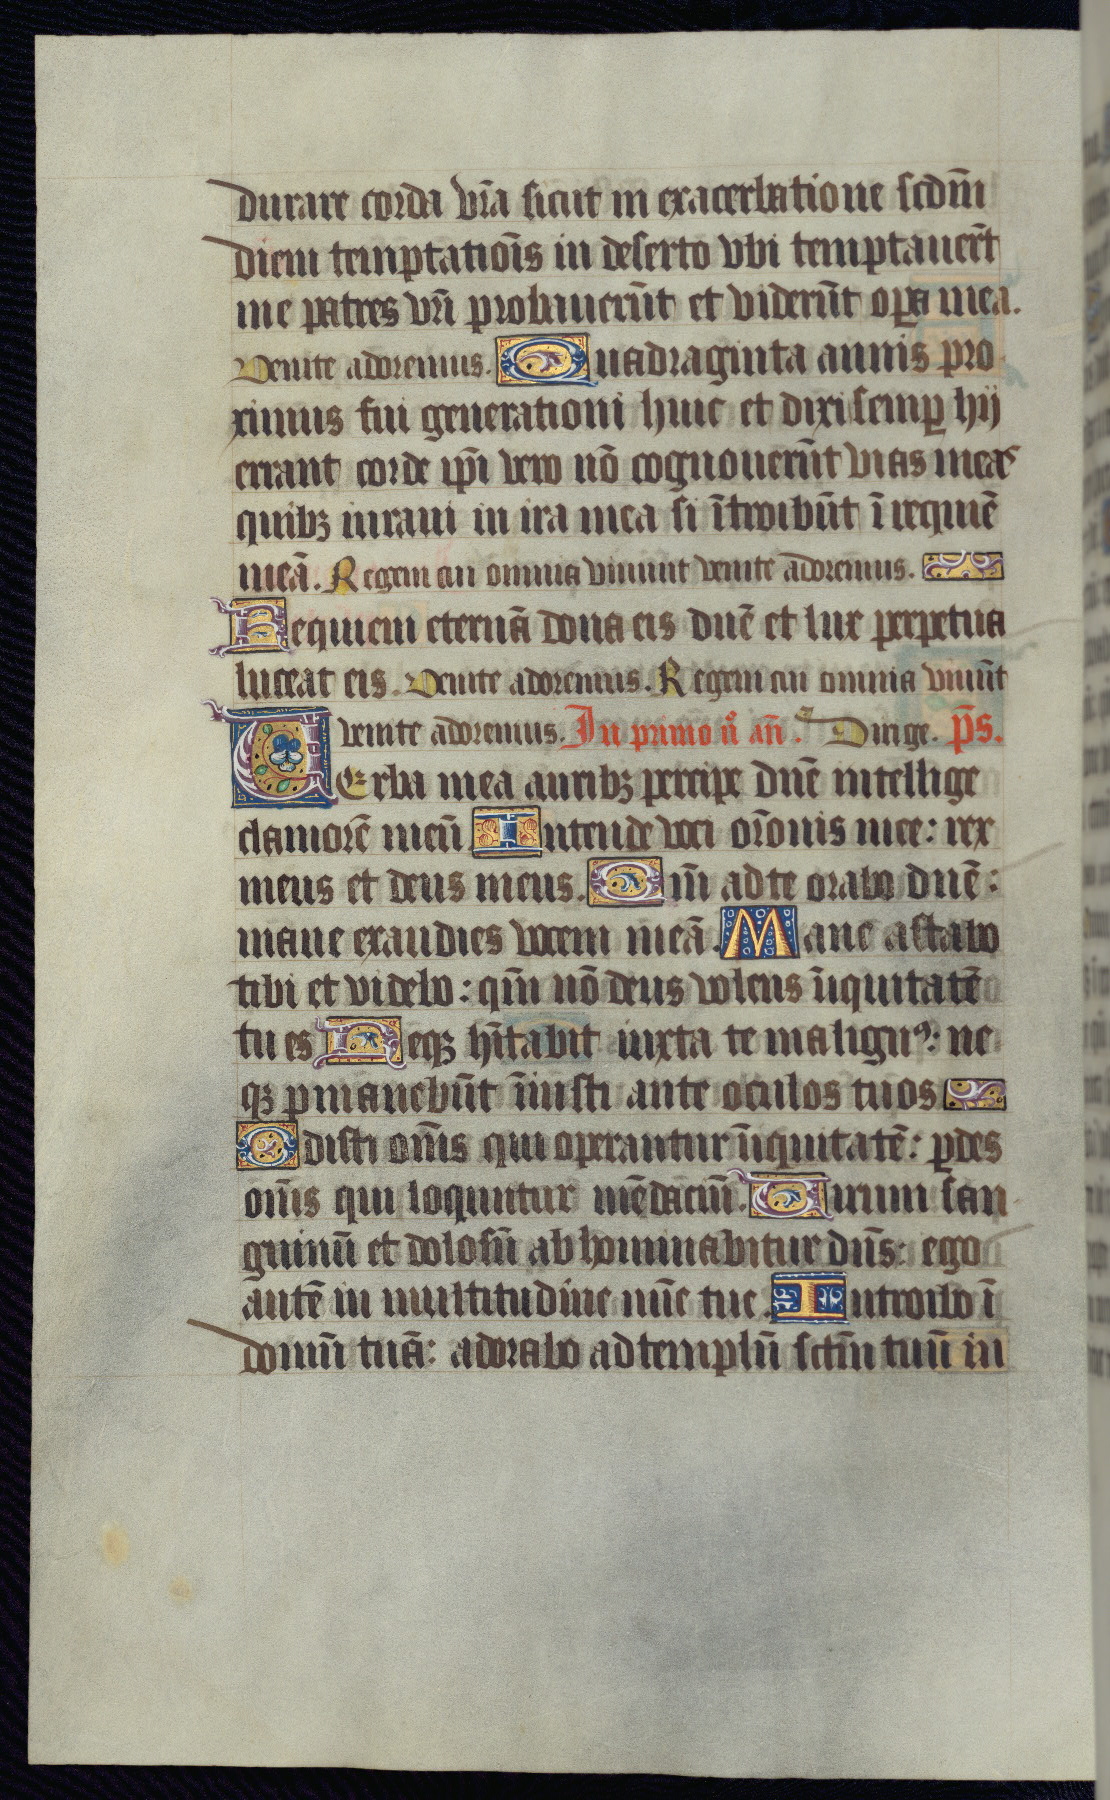 durare corda vr̄a sicut in exacerbatione scdm̄
diem temptatiōis in deserto vbi temptauer̄t
me patres vr̄i probauerūt et viderūt oꝑa mea.
Venite adoremus. Quadraginta annis pro
ximus fui generationi huic et dixi semꝑ hij
errant corde ip̄i vero nō cognouerūt vias meas
quibꝫ iuraui in ira mea si ītroibūt ī requiē
meā. Regem cui omnia viuunt venite adoremus.
Requiem eternā dona eis dn̄e et lux perpetua
luceat eis. Venite adoremus. Regem cui omnia viuūt
venite adoremus. In primo n̊ an̄. Dirige. p̄s.
VErba mea auribꝫ percipe dn̄e intellige
clamorē meū Intende voci or̄onis mee: rex
meus et deus meus. Qm̄ ad te orabo dn̄e:
mane exaudies vocem meā. Mane astabo
tibi et videbo: qm̄ nō deus volens īiquitatē
tu es Neqꝫ hītabit iuxta te malignꝰ: ne
qꝫ ꝑmanebūt īiusti ante oculos tuos
Odisti om̄is qui operantur īiquitatē: ꝑdes
om̄is qui loquntur mēdaciū. Uirum san
guinū et dolosū abhominabitur dn̄s: ego
autē in multitudine mīe tue. Introibo ī
domū tuā: adorabo ad templū sctm̄ tuū in